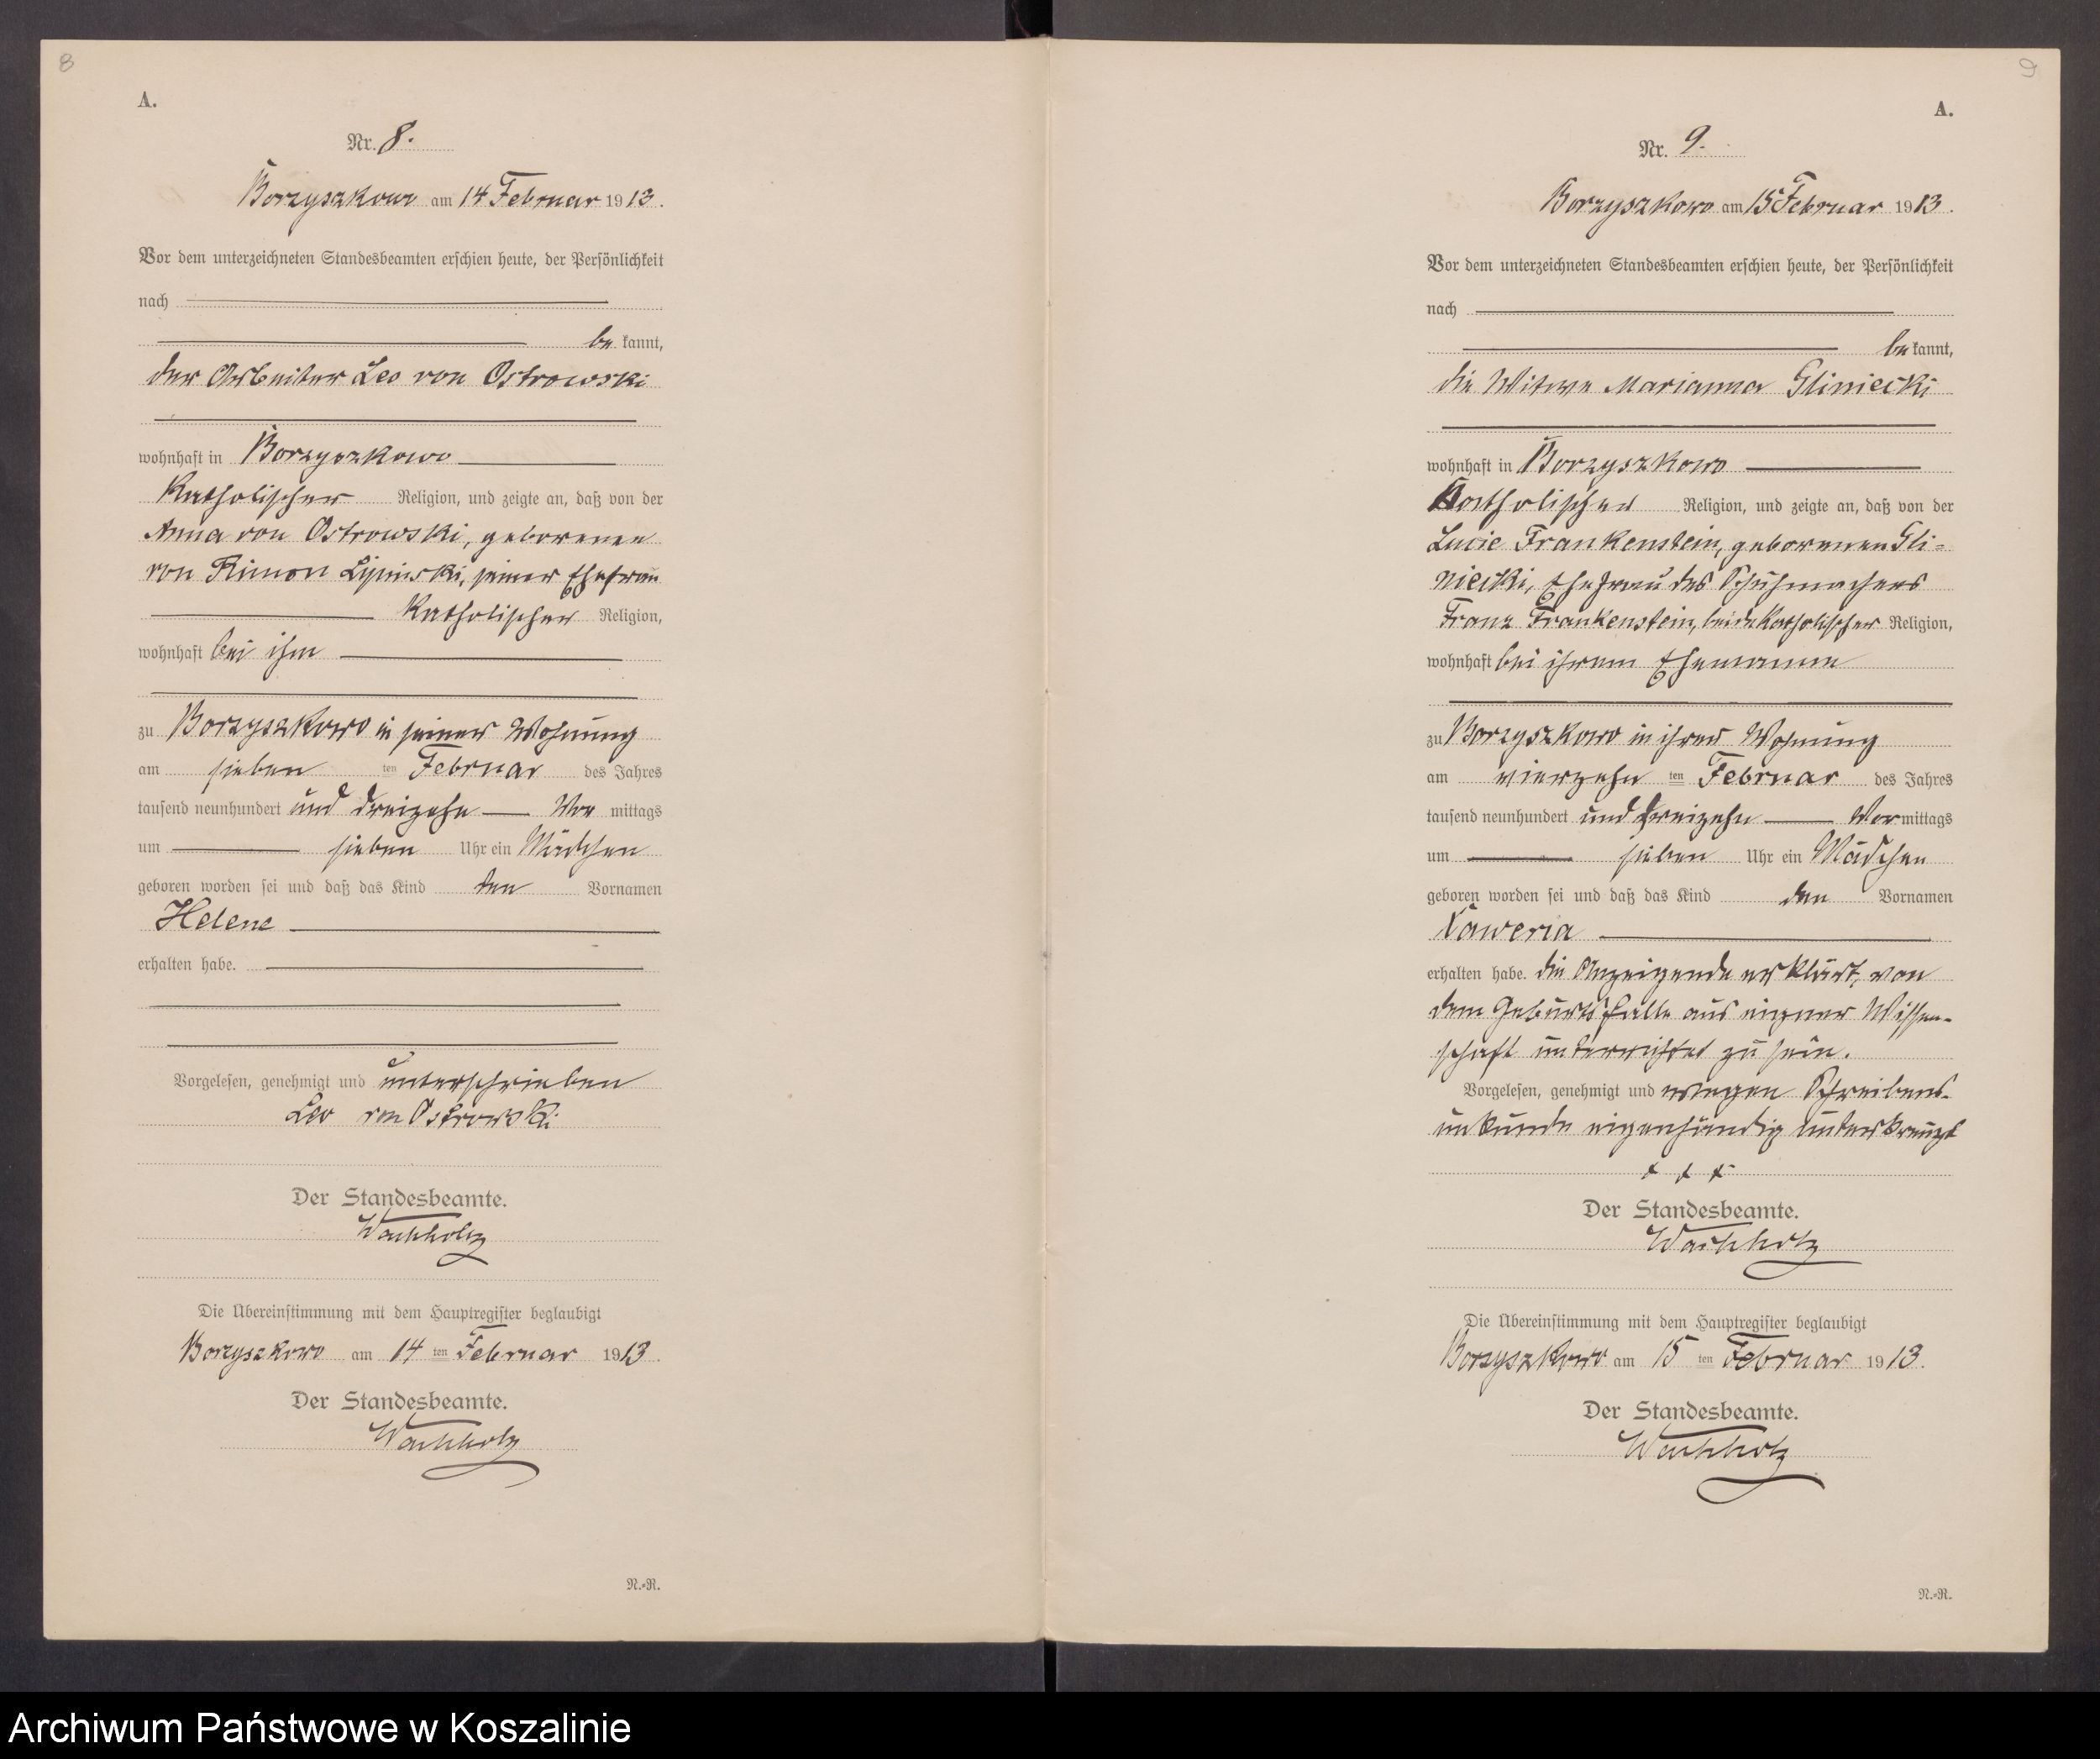 8
A.
Nr. 8.
Borzyszkowo am 14 Februar 1913.
Vor dem unterzeichneten Standesbeamten erschien heute, der Persönlichkeit
nach
be kannt,
der Arbeiter Leo von Ostrowski
wohnhaft in Borzyszkowo
katholischer Religion, und zeigte an, daß von der
Anna von Ostrowski, geborenen
von Kimon Lipinski, seiner Ehefrau
katholischer Religion,
wohnhaft bei ihm
zu Borzyszkowo in seiner Wohnung
am sieben ten Februar des Jahres
tausend neunhundert und dreizehn Vor mittags
um sieben Uhr ein Mädchen
geboren worden sei und daß das Kind den Vornamen
Helene
erhalten habe.
Vorgelesen, genehmigt und unterschrieben
Leo von Ostrowski
Der Standesbeamte.
Wachholz
Die Übereinstimmung mit dem Hauptregister beglaubigt
Borzyszkowo am 14 ten Februar 1913.
Der Standesbeamte.
Wachholz
N.-R.
9
A.
Nr. 9.
Borzyszkowo am 15 Februar 1913.
Vor dem unterzeichneten Standesbeamten erschien heute, der Persönlichkeit
nach
be kannt,
die Witwe Marianna Gliniecki
wohnhaft in Borzyszkowo
katholischer Religion, und zeigte an, daß von der
Lucie Frankenstein, geborenen Gli-
niecki, Ehefrau des Schuhmachers
Franz Frankenstein, beide katholischer Religion,
wohnhaft bei ihrem Ehemanne
zu Borzyszkowo in ihrer Wohnung
am vierzehn ten Februar des Jahres
tausend neunhundert und dreizehn Vor mittags
um sieben Uhr ein Mädchen
geboren worden sei und daß das Kind den Vornamen
Xaweria
erhalten habe. die Anzeigende erklärt, von
dem Geburtsfalle aus eigener Wissen-
schaft unterrichtet zu sein.
Vorgelesen, genehmigt und wegen Schreibens-
unkunde eigenhändig unterkreuzt
x x x
Der Standesbeamte.
Wachholz
Die Übereinstimmung mit dem Hauptregister beglaubigt
Borzyszkowo am 15 ten Februar 1913.
Der Standesbeamte.
Wachholz
N.-R.
Archiwum Państwowe w Koszalinie